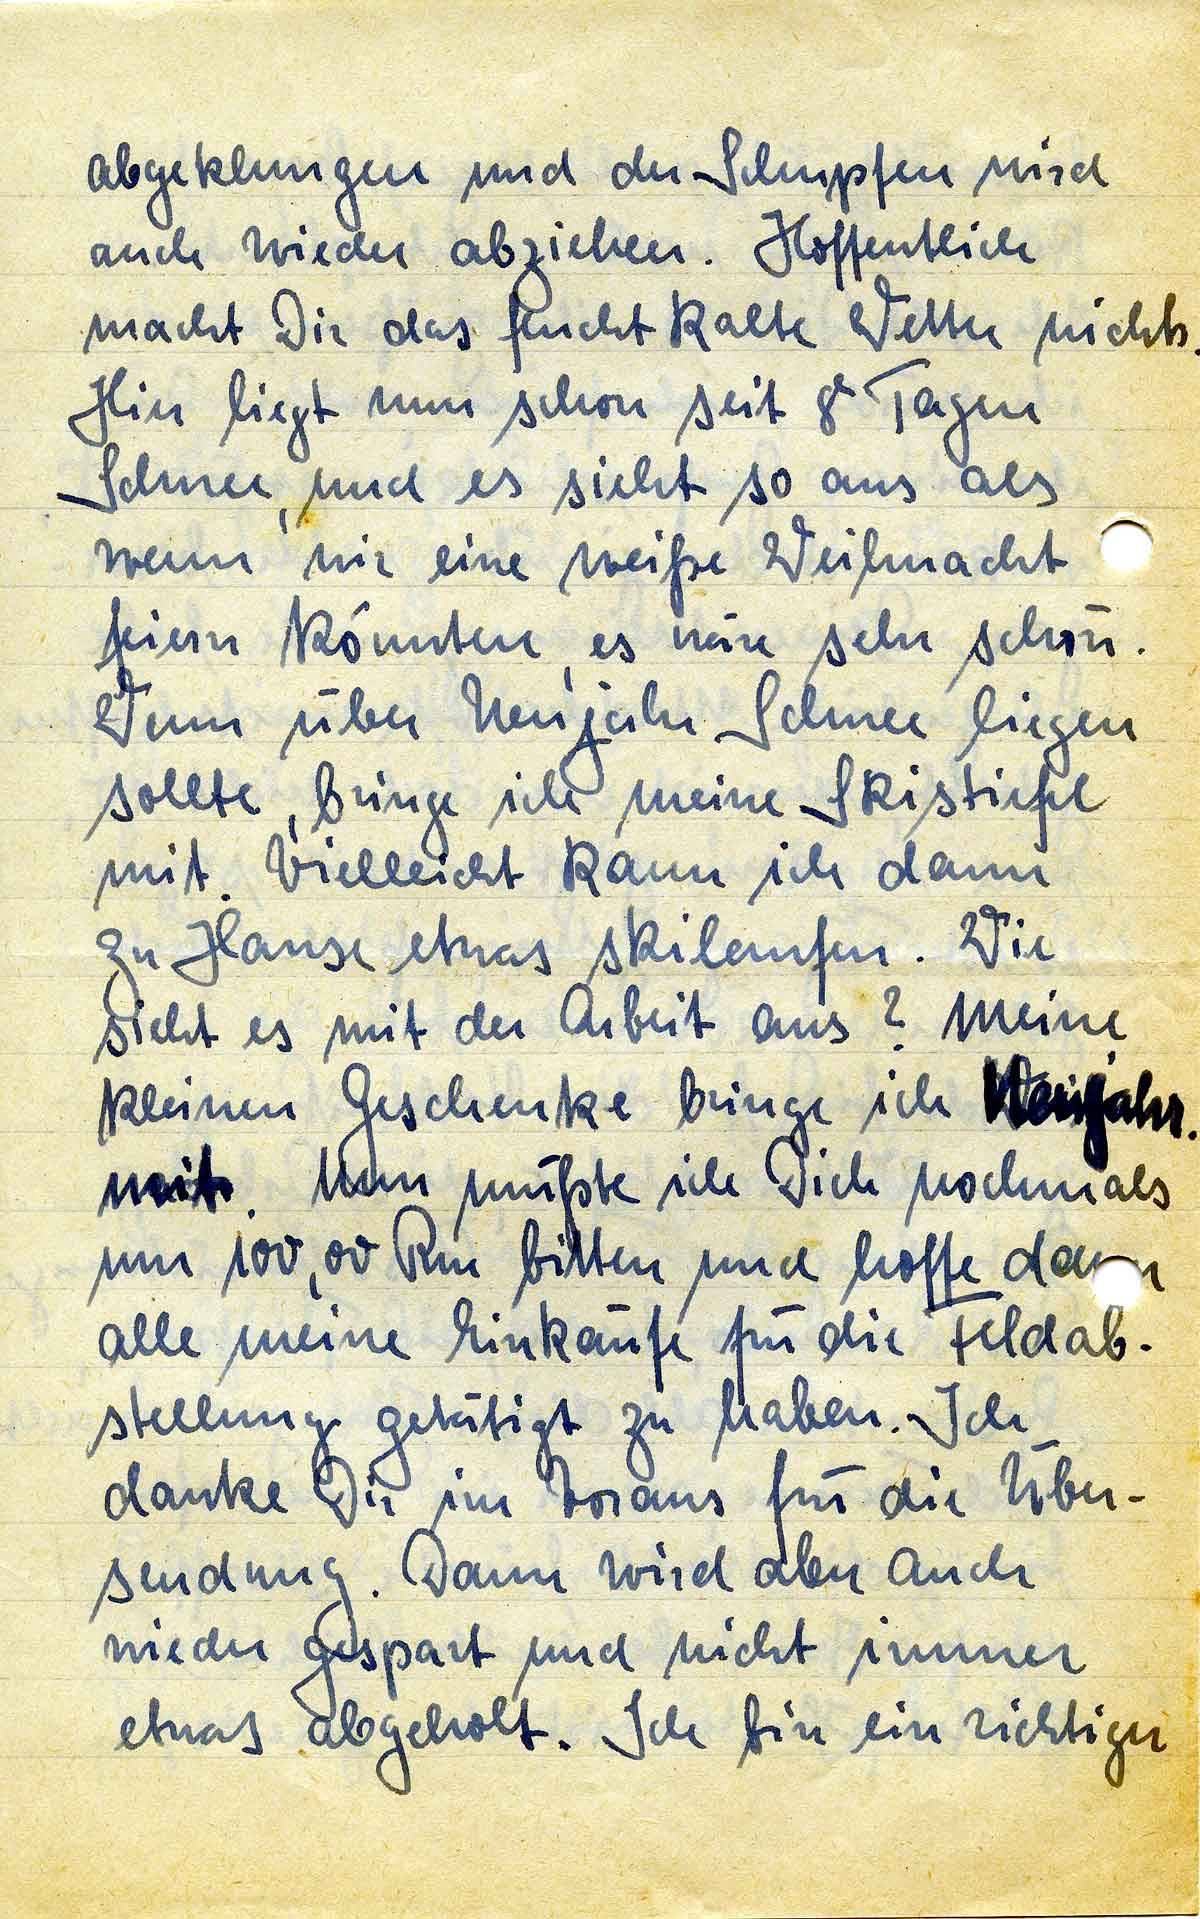 abgeklungen und der Schnupfen wird
auch wieder abziehen. Hoffentlich
macht Dir das feucht kalte Wetter nichts.
Hier liegt nun schon seit 8 Tagen
Schnee, und es sieht so aus als
wenn wir eine weiße Weihnacht
feiern könnten, es wäre sehr schön.
Wenn über Neujahr Schnee liegen
sollte, bringe ich meine Skistiefel
mit. Vielleicht kann ich dann
zu Hause etwas skilaufen. Wie
sieht es mit der Arbeit aus? Meine
kleinen Geschenke bringe ich Neujahr
mit. Nun müßte ich Dich nochmals
um 100,00 Rm bitten und hoffe dann
alle meine Einkäufe für die Feldab-
stellung getätigt zu haben. Ich
danke Dir im Voraus für die Über-
sendung. Dann wird aber auch
wieder gespart und nicht immer
etwas abgeholt. Ich bin ein richtiger